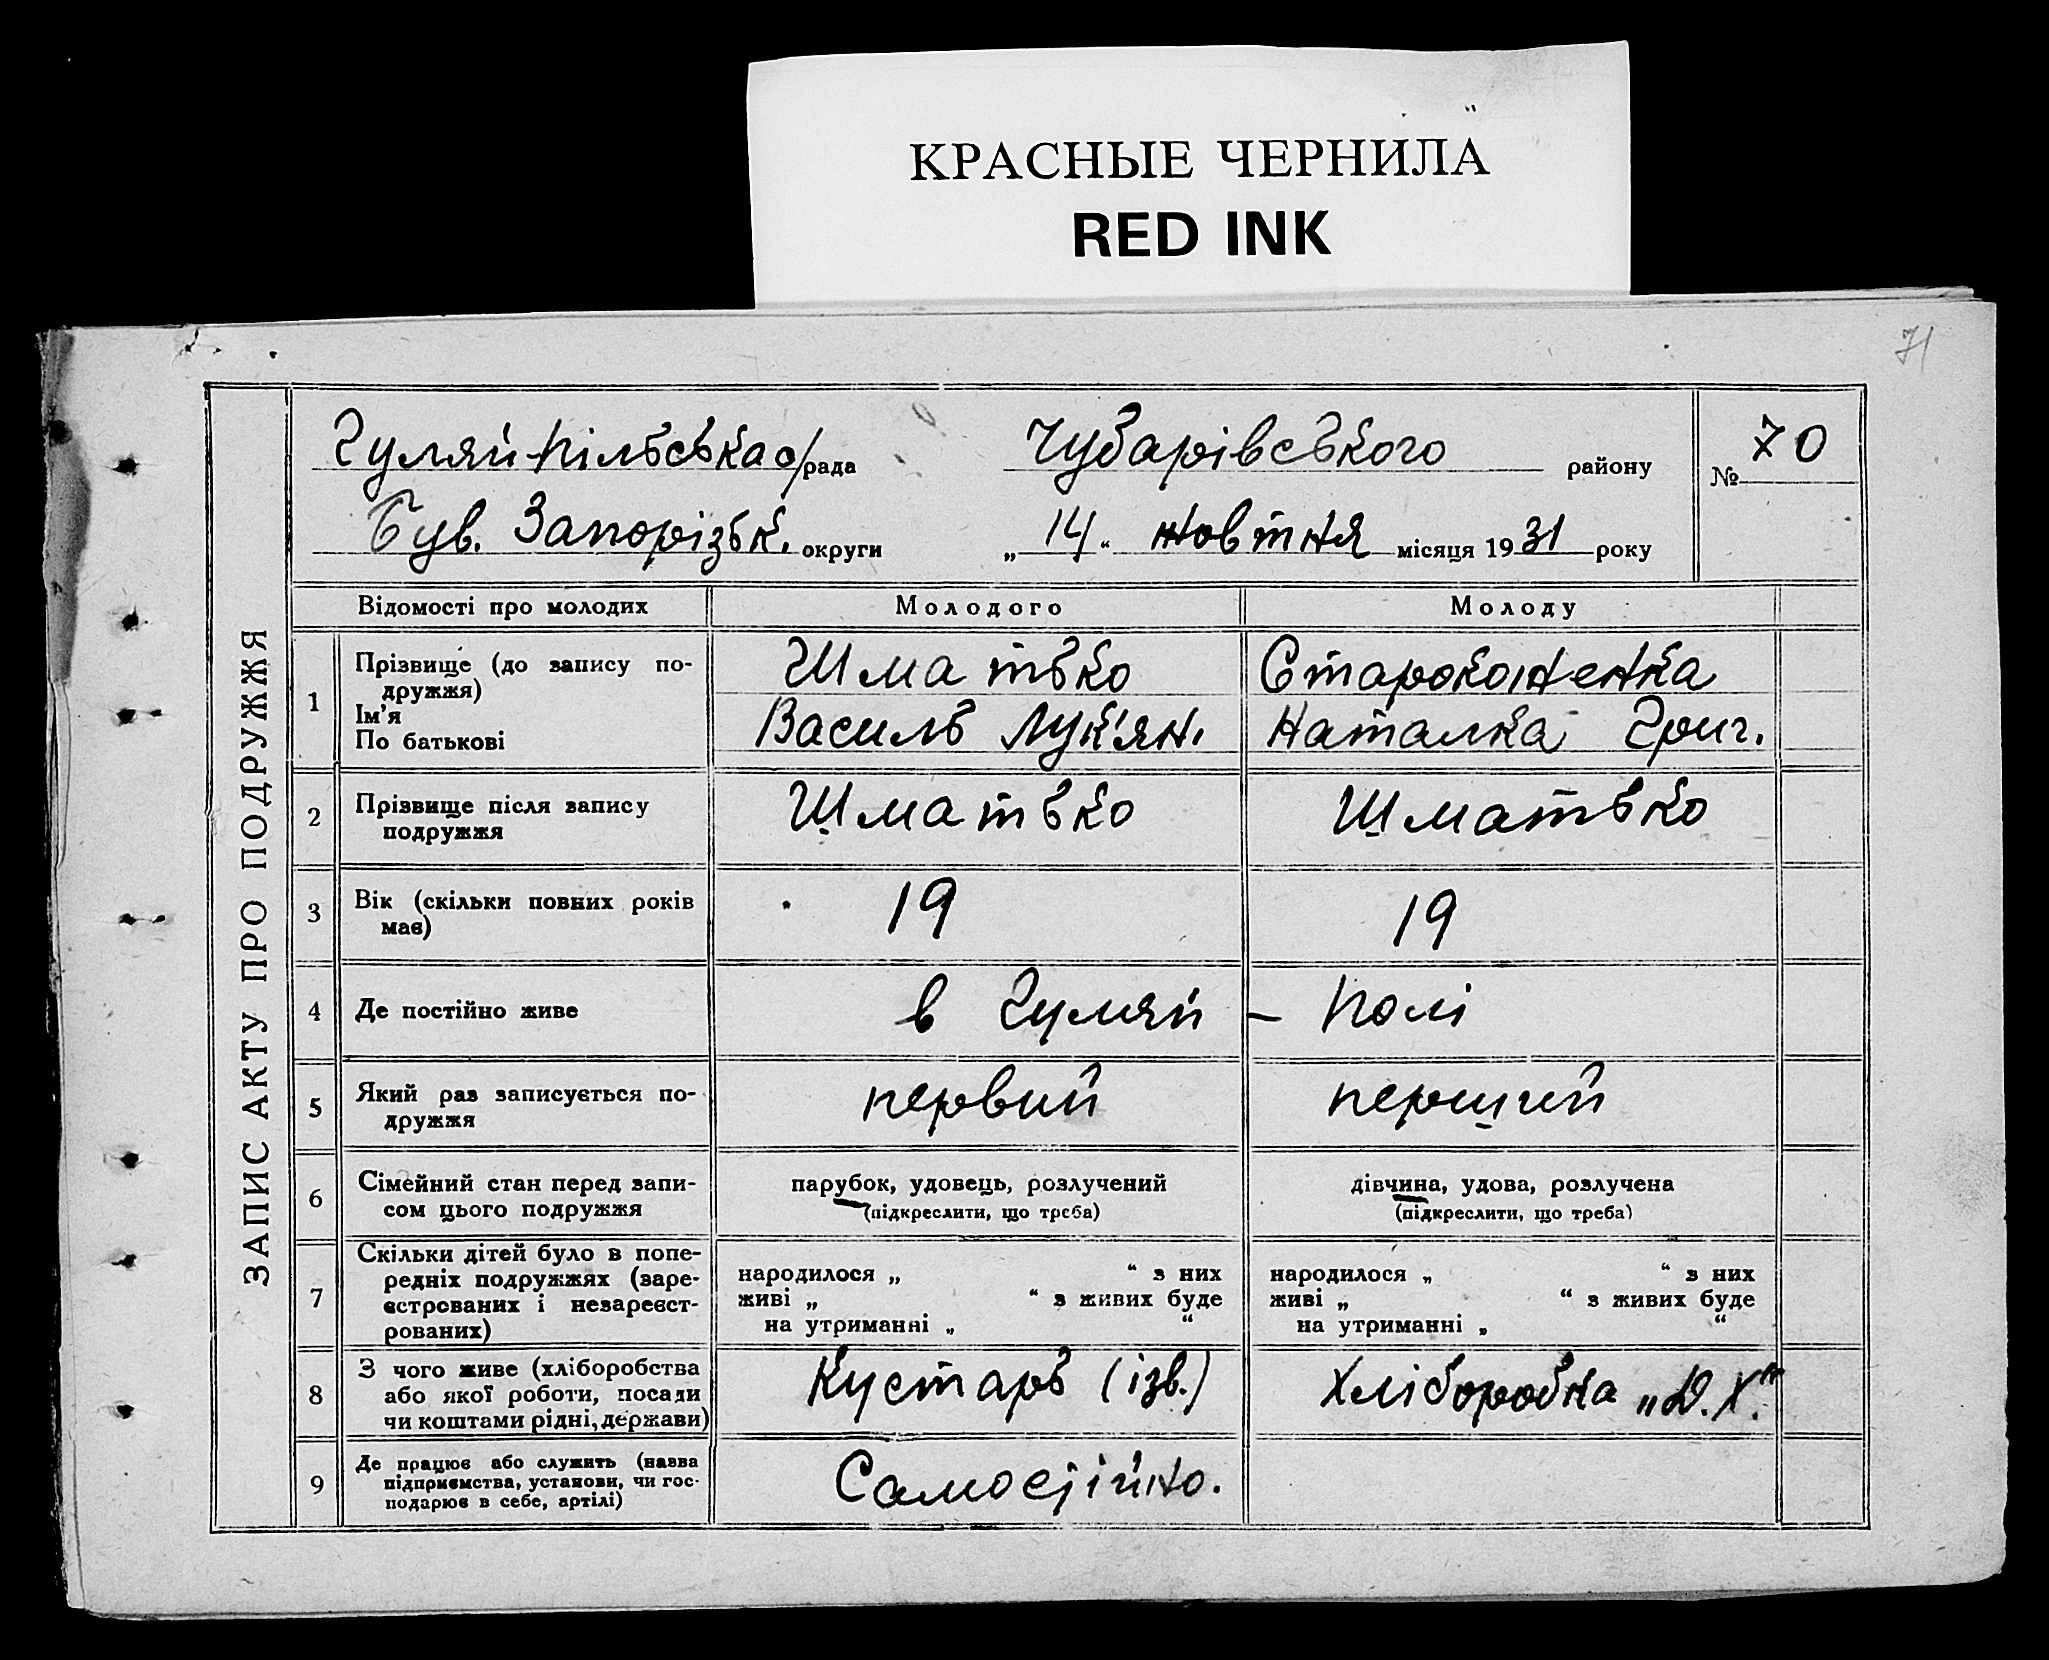 КРАСНЫЕ ЧЕРНИЛА
RED INK
71
ЗАПИС АКТУ ПРО ПОДРУЖЖЯ
Гуляйпільська с/рада Чубарівського району № 70
Був. Запорізьк. округи „14“ жовтня місяця 1931 року
Відомості про молодих Молодого Молоду
1 Прізвище (до запису по-
дружжя)
Ім'я
По батькові
Шматько
Василь Лук'ян.
Староконенка
Наталка Григ.
2 Прізвище після запису
подружжя
Шматько Шматько
3 Вік (скільки повних років
має)
19 19
4 Де постійно живе в Гуляй – Полі
5 Який раз записується по-
дружжя
первий перший
6 Сімейний стан перед запи-
сом цього подружжя
парубок, удовець, розлучений
(підкреслити, що треба)
дівчина, удова, розлучена
(підкреслити, що треба)
7 Скільки дітей було в попе-
редніх подружжях (заре-
єстрованих і незареєст-
рованих)
народилося „ “ з них
живі „ “ з живих буде
на утриманні „ “
народилося „ “ з них
живі „ “ з живих буде
на утриманні „ “
8 З чого живе (хліборобства
або якої роботи, посади
чи коштами рідні, держави)
Кустарь (ізв.) Хліборобка „О.Х.“
9 Де працює або служить (назва
підприємства, установи, чи гос-
подарює в себе, артілі)
Самосійно.